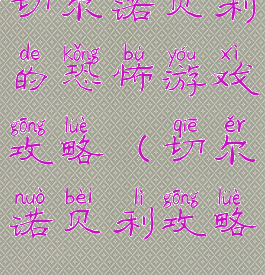 切尔诺贝利
de kǒng bù yóu xì
的恐怖游戏
gōng lüè qiē ěr
攻略（切尔
nuò bèi lì gōng lüè
诺贝利攻略